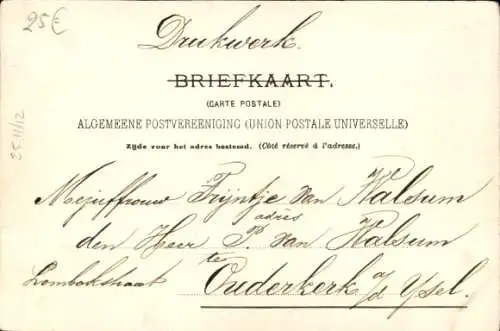 25€
Drukwerk.
BRIEFKAART.
(CARTE POSTALE)
ALGEMEENE POSTVEREENIGING (UNION POSTALE UNIVERSELLE)
Zijde voor het adres bestemd. (Côté réservé à l'adresse.)
25.11/12
Mejuffrouw Trijntje van Walsum
adres
den Heer P. van Walsum
te
Lombokstraat Ouderkerk a/d Ysel.